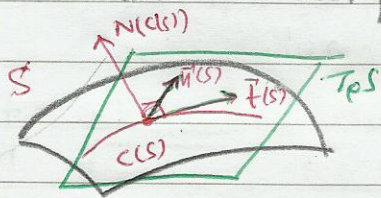 N(C(s))
S
n⃗(s)
t⃗(s)
TpS
C(s)